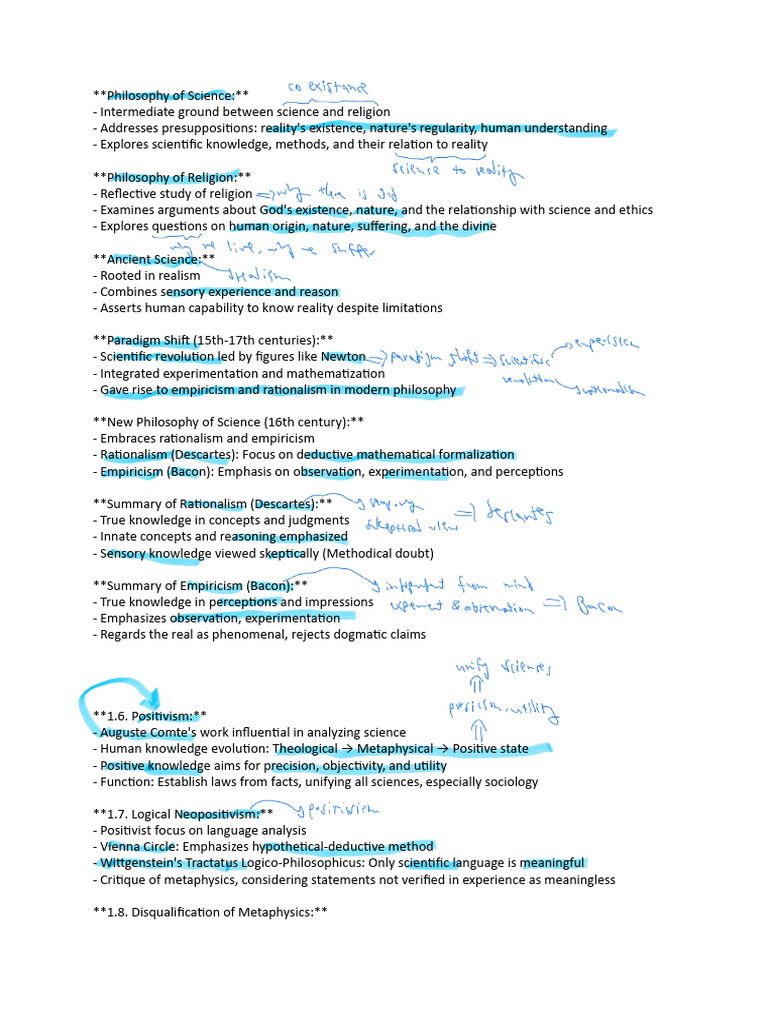 co existance
**Philosophy of Science:**
- Intermediate ground between science and religion
- Addresses presuppositions: reality's existence, nature's regularity, human understanding
- Explores scientific knowledge, methods, and their relation to reality
science to reality
**Philosophy of Religion:**
- Reflective study of religion => why there is god
- Examines arguments about God's existence, nature, and the relationship with science and ethics
- Explores questions on human origin, nature, suffering, and the divine
why we live, why we suffer
**Ancient Science:**
- Rooted in realism
realism
- Combines sensory experience and reason
- Asserts human capability to know reality despite limitations
**Paradigm Shift (15th-17th centuries):**
- Scientific revolution led by figures like Newton => paradigm shift => scientific
revolution
- Integrated experimentation and mathematization
- Gave rise to empiricism and rationalism in modern philosophy
rationalism
**New Philosophy of Science (16th century):**
- Embraces rationalism and empiricism
- Rationalism (Descartes): Focus on deductive mathematical formalization
- Empiricism (Bacon): Emphasis on observation, experimentation, and perceptions
**Summary of Rationalism (Descartes):**
- True knowledge in concepts and judgments
skeptical view => descartes
- Innate concepts and reasoning emphasized
- Sensory knowledge viewed skeptically (Methodical doubt)
**Summary of Empiricism (Bacon):** independent from mind
- True knowledge in perceptions and impressions
experiment & observation => Bacon
- Emphasizes observation, experimentation
- Regards the real as phenomenal, rejects dogmatic claims
unify sciences
⇑
precision, utility
⇑
**1.6. Positivism:**
- Auguste Comte's work influential in analyzing science
- Human knowledge evolution: Theological → Metaphysical → Positive state
- Positive knowledge aims for precision, objectivity, and utility
- Function: Establish laws from facts, unifying all sciences, especially sociology
**1.7. Logical Neopositivism:** positivism
- Positivist focus on language analysis
- Vienna Circle: Emphasizes hypothetical-deductive method
- Wittgenstein's Tractatus Logico-Philosophicus: Only scientific language is meaningful
- Critique of metaphysics, considering statements not verified in experience as meaningless
**1.8. Disqualification of Metaphysics:**